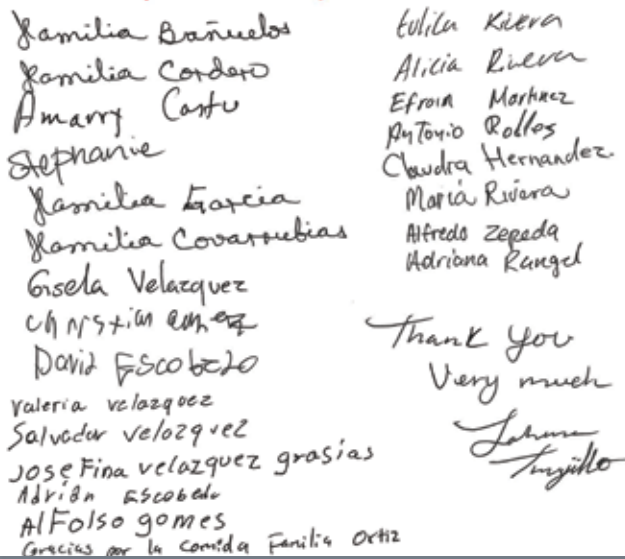 Familia Bañuelos
Familia Cordero
Amarry
Stephanie
Familia Garcia
Familia Covarrubias
Gisela Velazquez
Christian
David Escobedo
valeria velazquez
Salvador velazquez
Josefina velazquez grasias
Adrián Escobedo
AlFolso gomes
Gracias por la comida Familia Ortiz
Rivera
Alicia Rivera
Efrain Martinez
Antonio Robles
Claudia Hernandez
Maria Rivera
Alfredo Zepeda
Adriana Rangel
Thank you
Very much